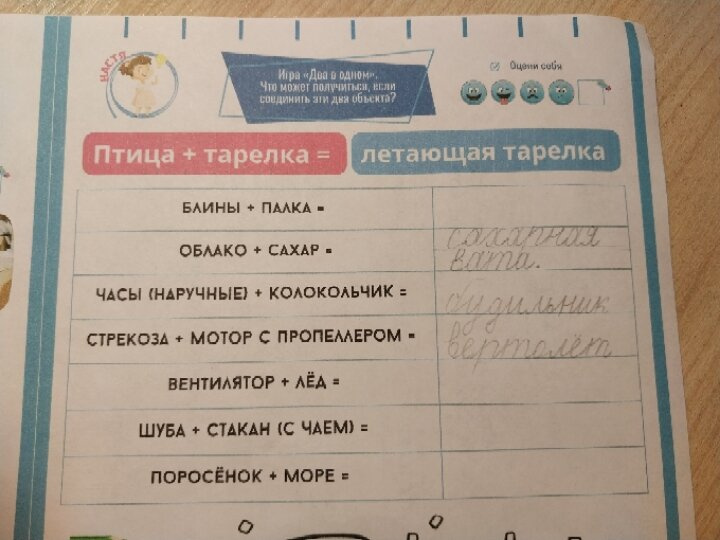 НАСТЯ
Игра «Два в одном».
Что может получиться, если
соединить эти два объекта?
Оцени себя
Птица + тарелка = летающая тарелка
БЛИНЫ + ПАЛКА =
ОБЛАКО + САХАР = сахарная
вата.
ЧАСЫ (НАРУЧНЫЕ) + КОЛОКОЛЬЧИК = будильник
СТРЕКОЗА + МОТОР С ПРОПЕЛЛЕРОМ = вертолёт
ВЕНТИЛЯТОР + ЛЁД =
ШУБА + СТАКАН (С ЧАЕМ) =
ПОРОСЁНОК + МОРЕ =